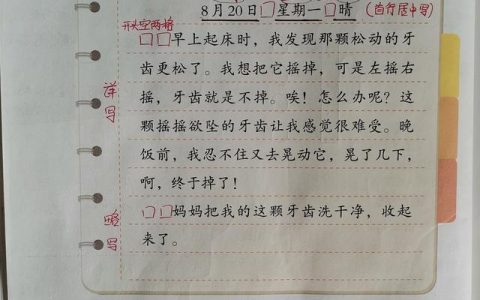 8月20日□星期一□晴（自行居中写）
开头空两格
□□早上起床时，我发现那颗松动的牙
齿更松了。我想把它摇掉，可是左摇右
摇，牙齿就是不掉。唉！怎么办呢？这
颗摇摇欲坠的牙齿让我感觉很难受。晚
饭前，我忍不住又去晃动它，晃了几下，
啊，终于掉了！
详写
□□妈妈把我的这颗牙齿洗干净，收起
来了。
略写